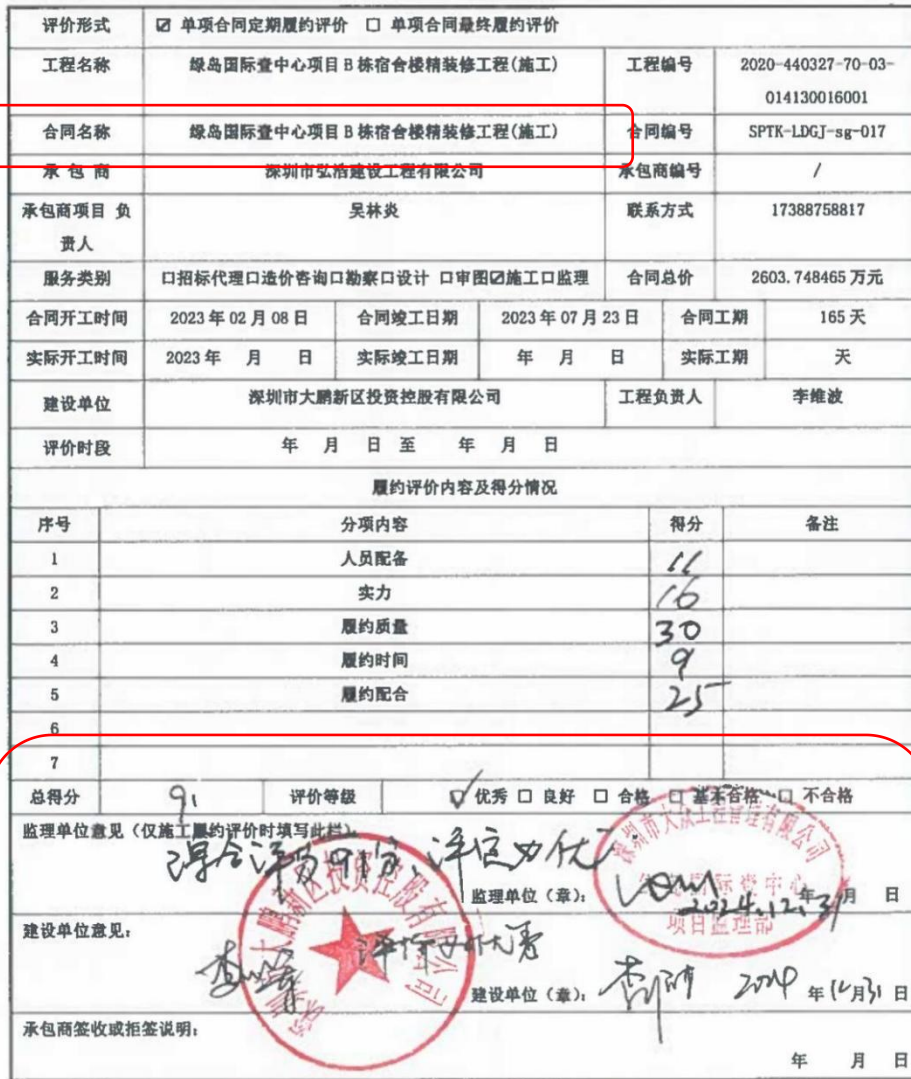 评价形式 ☑ 单项合同定期履约评价 □ 单项合同最终履约评价
工程名称 绿岛国际壹中心项目 B 栋宿舍楼精装修工程(施工) 工程编号 2020-440327-70-03-
014130016001
合同名称 绿岛国际壹中心项目 B 栋宿舍楼精装修工程(施工) 合同编号 SPTK-LDGJ-sg-017
承 包 商 深圳市弘浩建设工程有限公司 承包商编号 /
承包商项目 负 吴林炎 联系方式 17388758817
责人
服务类别 口招标代理口造价咨询口勘察口设计 口审图☑施工口监理 合同总价 2603.748465 万元
合同开工时间 2023 年 02 月 08 日 合同竣工日期 2023 年 07 月 23 日 合同工期 165 天
实际开工时间 2023 年 月 日 实际竣工日期 年 月 日 实际工期 天
建设单位 深圳市大鹏新区投资控股有限公司 工程负责人 李维波
评价时段 年 月 日 至 年 月 日
履约评价内容及得分情况
序号 分项内容 得分 备注
1 人员配备 11
2 实力 16
3 履约质量 30
4 履约时间 9
5 履约配合 25
6
7
总得分 91 评价等级 ☑ 优秀 □ 良好 □ 合格 □ 基本合格 □ 不合格
监理单位意见（仅施工履约评价时填写此栏）
综合评分91分,评定为优
深圳市大众工程管理有限公司
项目监理部
监理单位（章）： 2024.12.31 年 月 日
建设单位意见：
深圳市大鹏新区投资控股有限公司
评价为优秀
建设单位（章）： 2024 年 12 月 31 日
承包商签收或拒签说明：
年 月 日